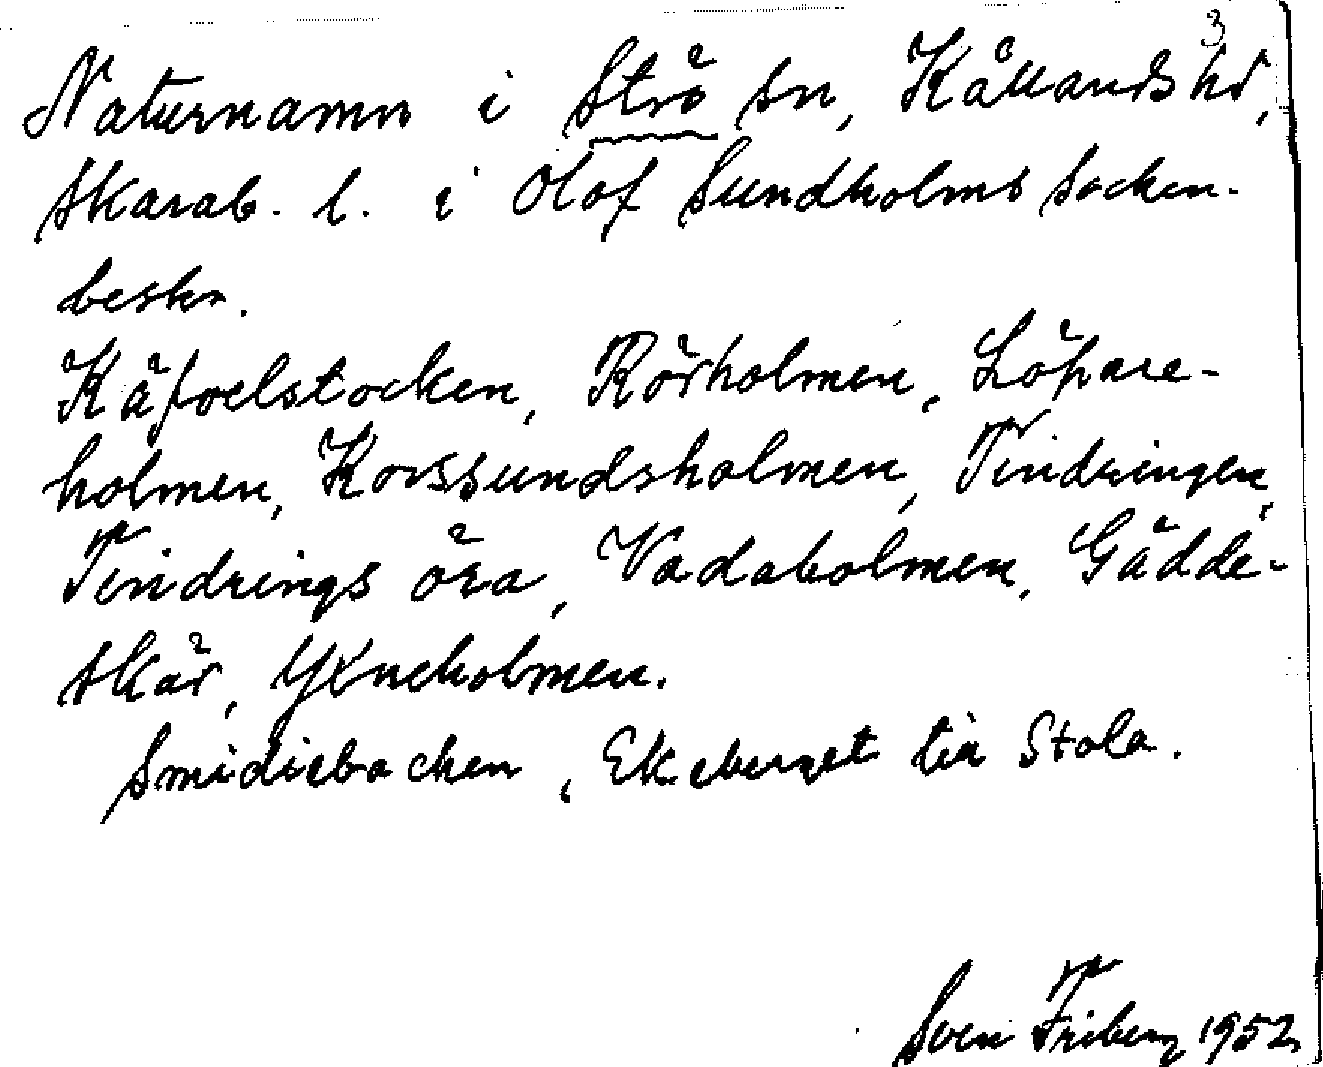 3
Naturnamn i Strö sn, Kållands hd,
Skarab. l. i Olof Sundholms socken-
beskr.
Käpoelstocken, Rörholmen, Löpare-
holmen, Korssundsholmen, Tindringen,
Tindrings öra, Vadabolmen, Gädde-
skär, Yxneholmen.
Smidiebacken, Ekeberget till Stola.
Sven Friberg 1952